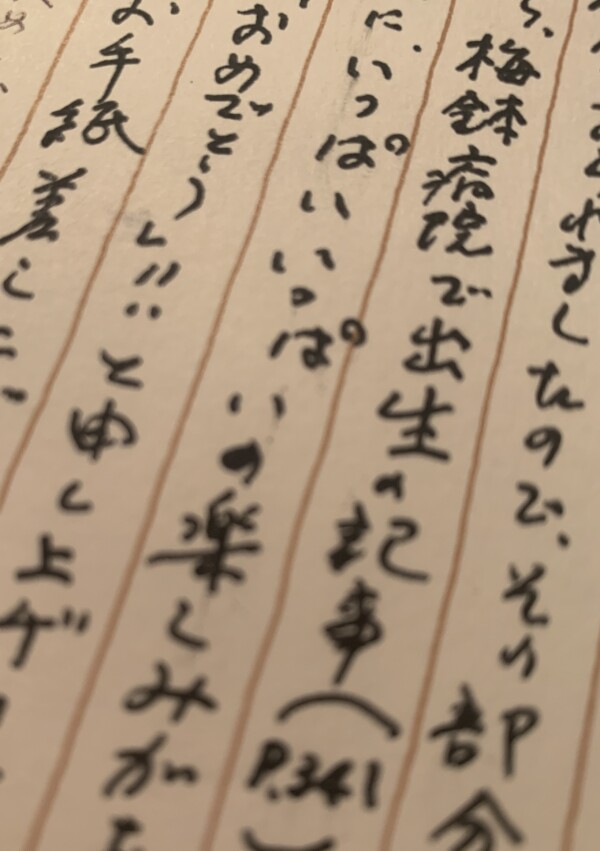 れましたので、その部分
、梅鉢病院で出生の記事(P.341)
に、いっぱいいっぱいの楽しみが
おめでとう」!!と申し上げ
お手紙差し